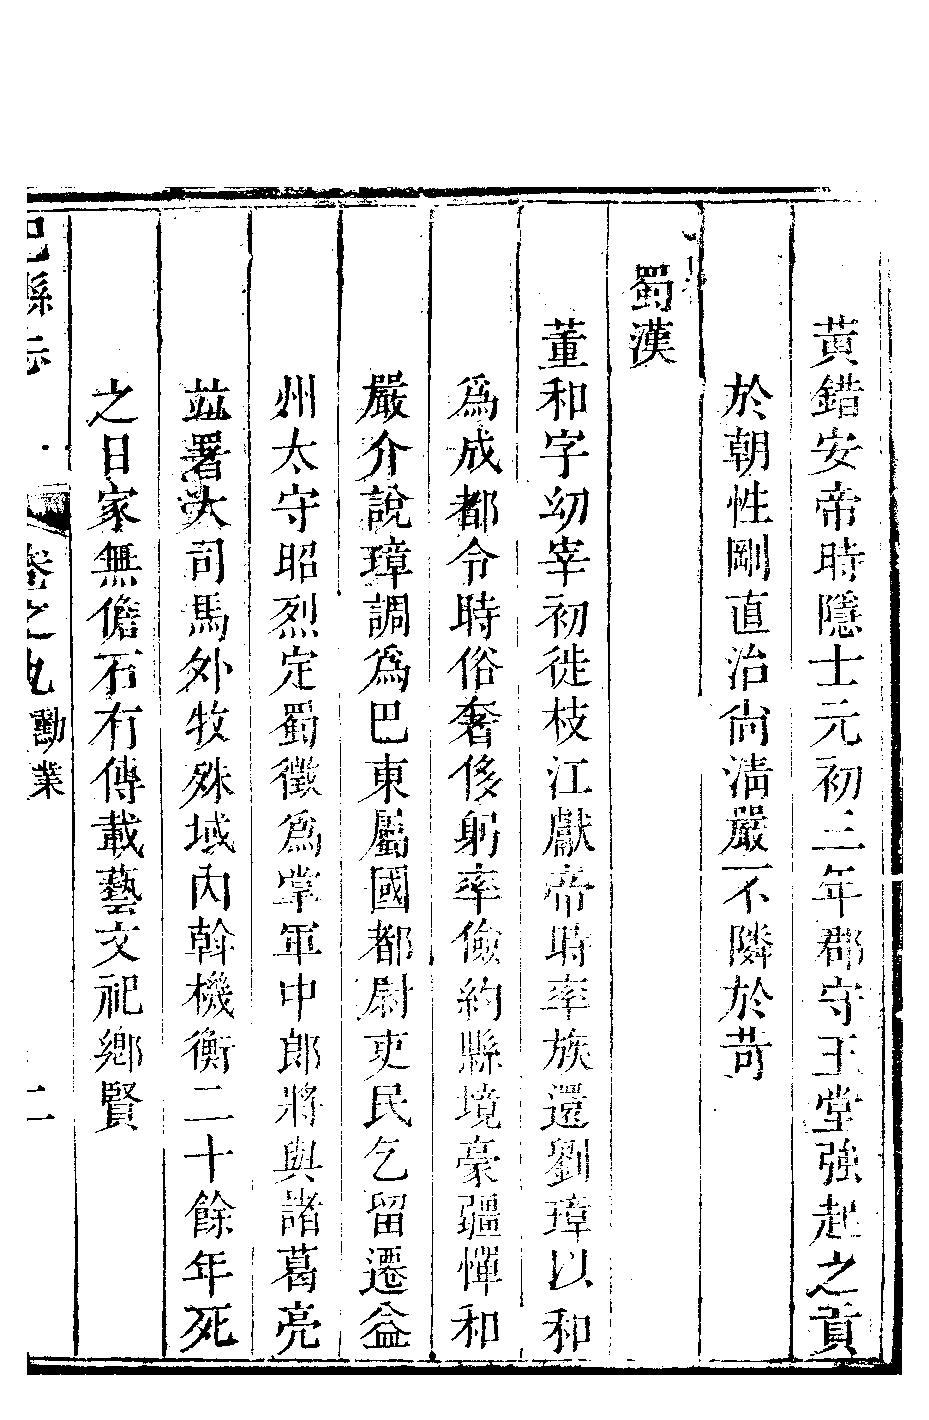 黃錯安帝時隱士元初三年郡守王堂強起之貢
於朝性剛直治尚淸嚴不隣於苛
蜀漢
董和字幼宰初徙枝江獻帝時率族還劉璋以和
爲成都令時俗奢侈躬率儉約縣境豪疆憚和
嚴介說璋調爲巴東屬國都尉吏民乞留遷益
州太守昭烈定蜀徵爲掌軍中郎將與諸葛亮
竝署大司馬外牧殊域內斡機衡二十餘年死
之日家無儋石有傳載藝文祀鄉賢
巴縣志 卷之九 勳業 二